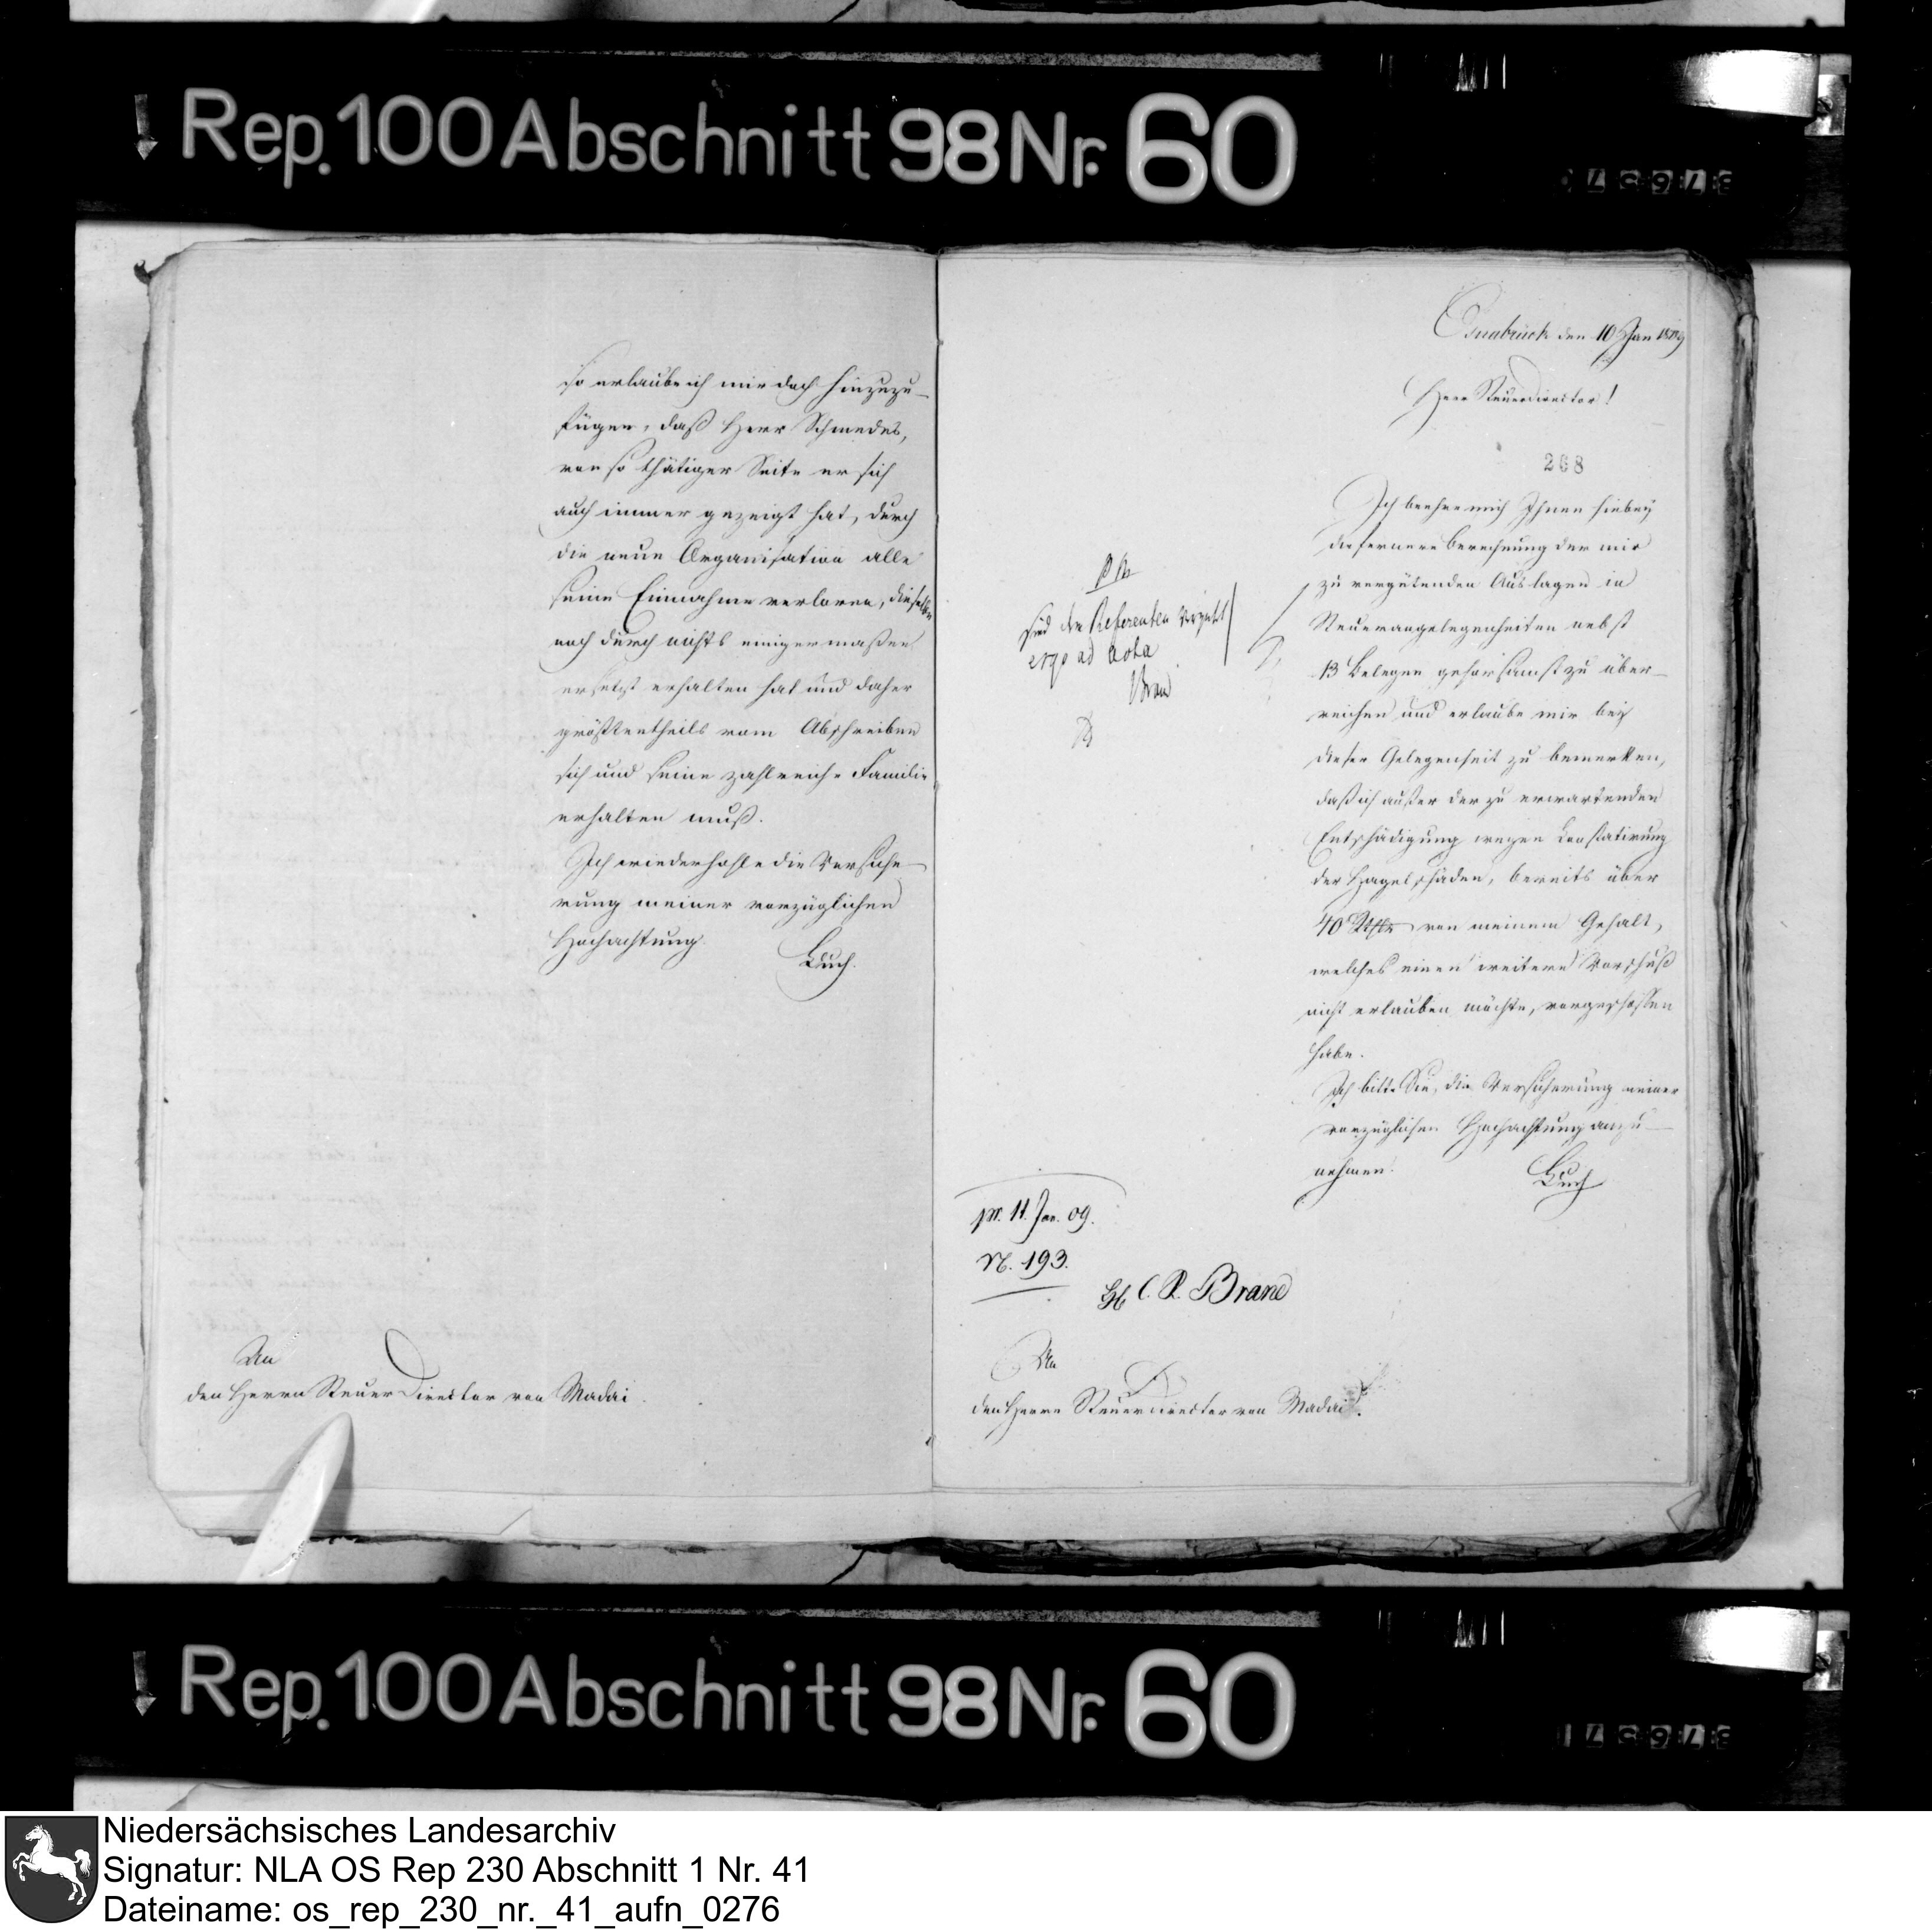 Rep. 100 Abschnitt 98 Nr. 60
so erlaube ich mir doch hinzuzu-
fügen, daß Herr Schmedes,
von so thätiger Seite er sich
auch immer gezeigt hat, durch
die neue Organisation alle
seine Einnahme verloren, dieselbe
noch durch nichts einigermaßen
ersetzt erhalten hat und daher
größtentheils vom Abschreiben
sich und seine zahlreiche Familie
erhalten muß.
Ich wiederhohle die Versiche-
rung meiner vorzüglichen
Hochachtung.
An
den Herrn Steuer Director von Madai.
Osnabrück den 10 Jan 1809
Herr Steuerdirector!
268
Ich beehre mich Ihnen hiebey
die fernere Berechnung der mir
zu vergütenden Auslagen in
Steuerangelegenheiten nebst
13 Belegen gehorsamst zu über-
reichen und erlaube mir bey
dieser Gelegenheit zu bemerken,
daß ich außer der zu erwartenden
Entschädigung wegen Constatirung
der Hagelschäden, bereits über
40 Rthlr von meinem Gehalt,
welches einen weitern Vorschuß
nicht erlauben möchte, vorgeschossen
habe.
Ich bitte Sie, die Versicherung meiner
vorzüglichen Hochachtung anzu-
nehmen.
sind dem Referenten
ergo ad acta
Brand
pr. 11. Jan. 09.
N. 193.
C. R. Brand
An
den Herrn Steuerdirector von Madai.
Rep. 100 Abschnitt 98 Nr. 60
Niedersächsisches Landesarchiv
Signatur: NLA OS Rep 230 Abschnitt 1 Nr. 41
Dateiname: os_rep_230_nr._41_aufn_0276